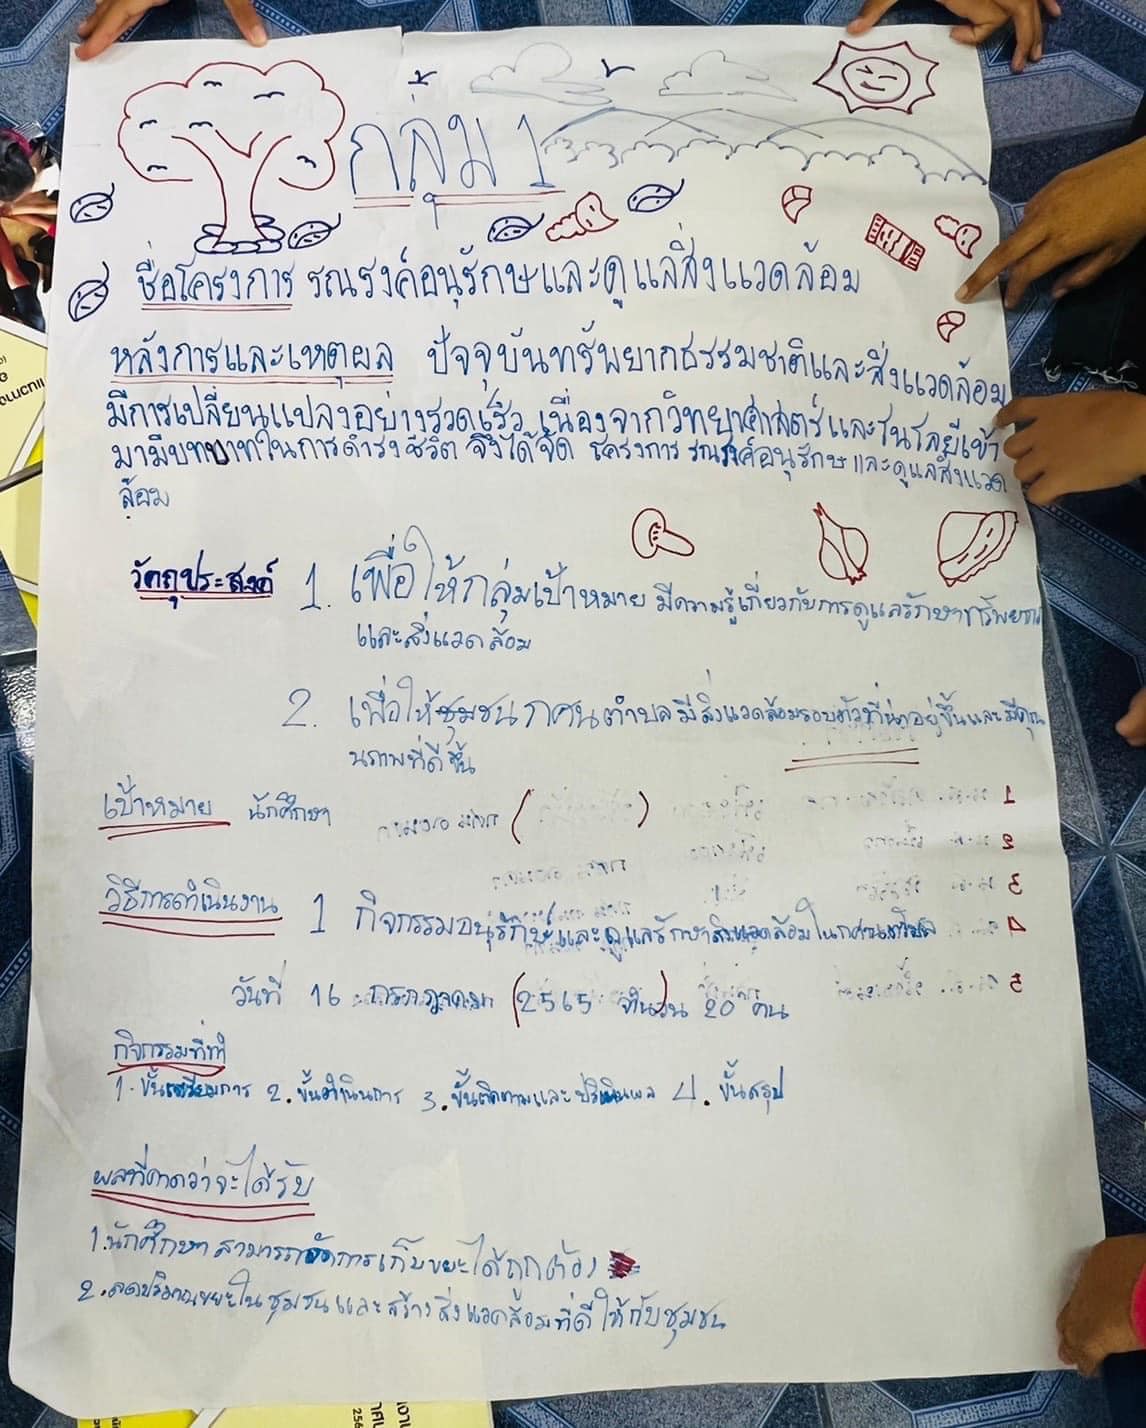 กลุ่ม 1
ชื่อโครงการ รณรงค์อนุรักษและดูแลสิ่งแวดล้อม
หลังการและเหตุผล ปัจจุบันทรัพยากธรรมชาติและสิ่งแวดล้อม
มีการเปลี่ยนแปลงอย่างรวดเร็ว เนื่องจากวิทยาศาสตร์และ เข้า
มามีบทบาทในการดำรงชีวิต จึงได้จัด โครงการ รณรงค์อนุรักษ และดูแลสิ่งแวด
ล้อม
วัตถุประสงค์ 1. เพื่อให้กลุ่มเป้าหมาย มีความรู้เกี่ยวกับการดูแลรักษา
และสิ่งแวดล้อม
2. เพื่อให้ชุมชน ตำบลมีสิ่งแวดล้อมรอบตัวที่น่าอยู่ขึ้นและมีคุณ
ภาพที่ดีขึ้น
เป้าหมาย นักศึกษา
วิธีการดำเนินงาน 1 กิจกรรมอนุรักษ์และดูแลรักษาสิ่งแวดล้อมใน
วันที่ 16 กรกฎาคม 2565 จำนวน 20 คน
กิจกรรมที่ทำ
1. ขั้นเตรียมการ 2. ขั้นดำเนินการ 3. ขั้นติดตามและประเมินผล 4. ขั้นสรุป
ผลที่คาดว่าจะได้รับ
1. นักศึกษา สามารถจัดการเก็บขยะได้ถูกต้อง
2. ลดปริมาณขยะในชุมชน และสร้างสิ่งแวดล้อมที่ดีให้กับชุมชน